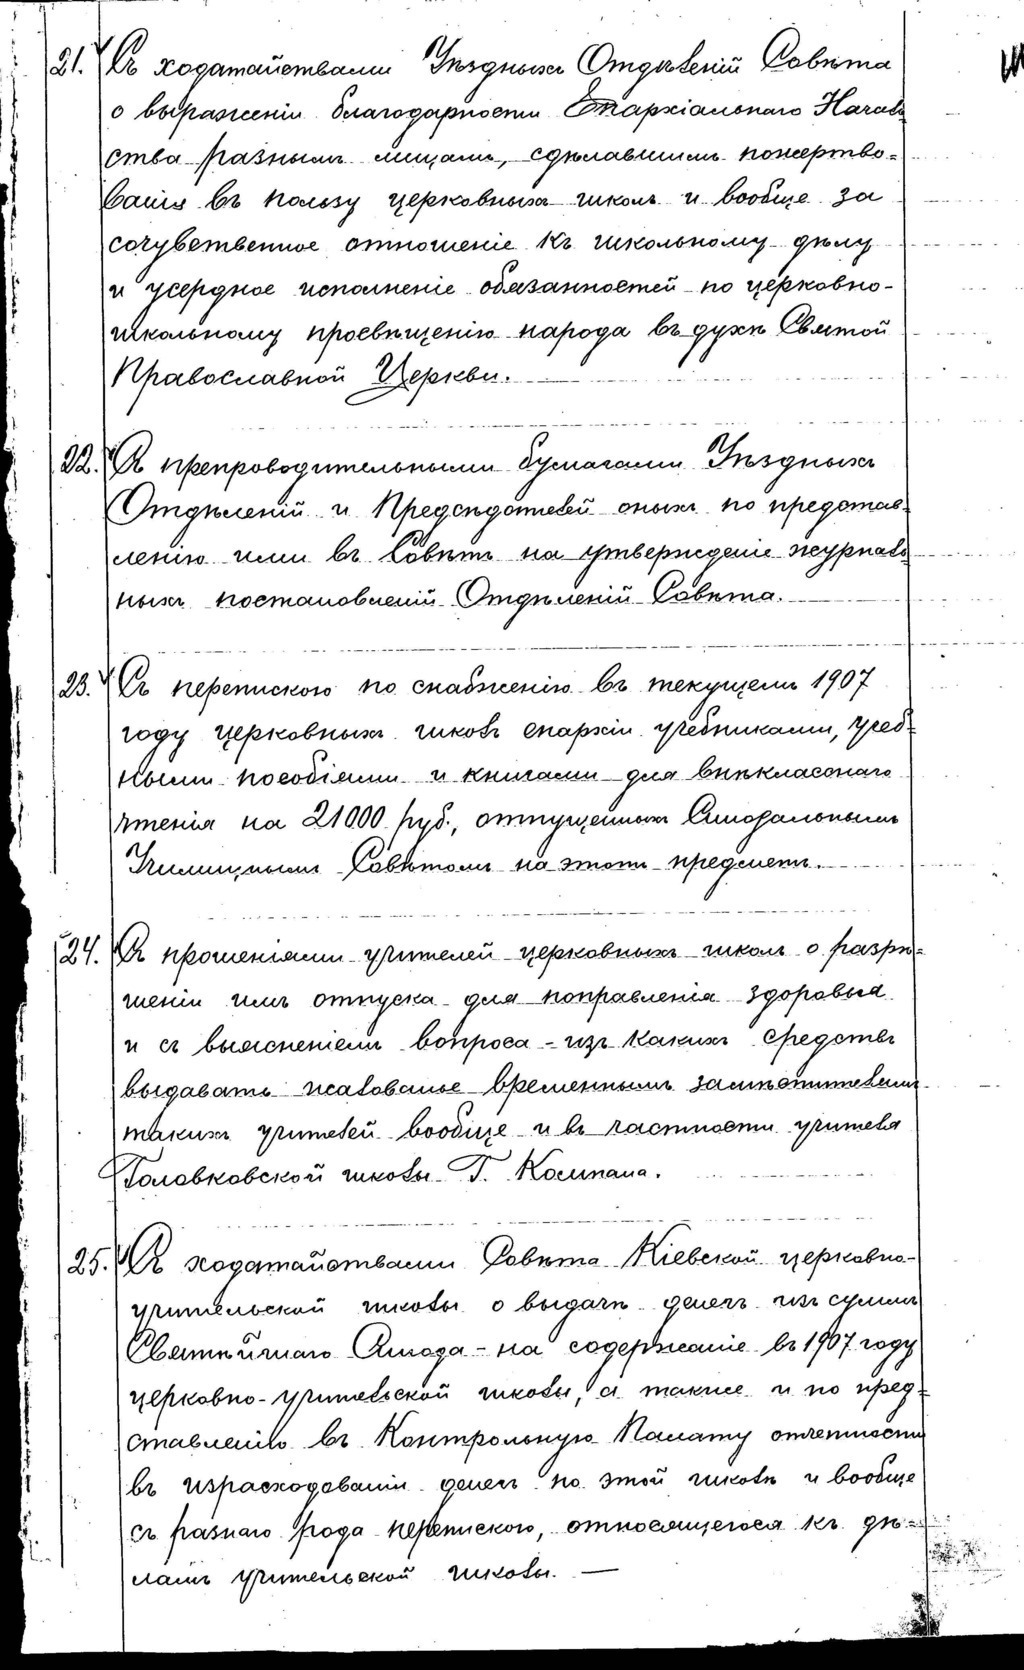 21. Съ ходатайствами Уѣздныхъ Отдѣленій Совѣта
о выраженіи благодарности Епархіальнаго Началь
ства разнымъ лицамъ, сдѣлавшимъ пожертво=
ванія въ пользу церковныхъ школъ и вообще за
сочувственное отношеніе къ школьному дѣлу
и усердное исполненіе обязанностей по церковно-
школьному просвѣщенію народа въ духѣ Святой
Православной Церкви.
22. Съ препроводительными бумагами Уѣздныхъ
Отдѣленій и Предсѣдателей оныхъ по представ=
ленію ими въ Совѣтъ на утвержденіе журналь
ныхъ постановленій Отдѣленій Совѣта.
23. Съ перепискою по снабженію въ текущемъ 1907
году церковныхъ школъ епархіи учебниками, учеб=
ными пособіями и книгами для внѣкласснаго
чтенія на 21000 руб., отпущенныхъ Синодальнымъ
Училищнымъ Совѣтомъ на этотъ предметъ.
24. Съ прошеніями учителей церковныхъ школъ о разрѣ=
шеніи имъ отпуска для поправленія здоровья
и съ выясненіемъ вопроса - изъ какихъ средствъ
выдавать жалованье временнымъ замѣстителямъ
такихъ учителей вообще и въ частности учителя
Головковской школы Г. Компана.
25. Съ ходатайствами Совѣта Кіевской церковно-
учительской школы о выдачѣ денегъ изъ суммъ
Святѣйшаго Синода - на содержаніе въ 1907 году
церковно-учительской школы, а также и по пред=
ставленію въ Контрольную Палату отчетности
въ израсходованіи денегъ по этой школѣ и вообще
съ разнаго рода перепискою, относящегося къ дѣ=
ламъ учительской школы. —